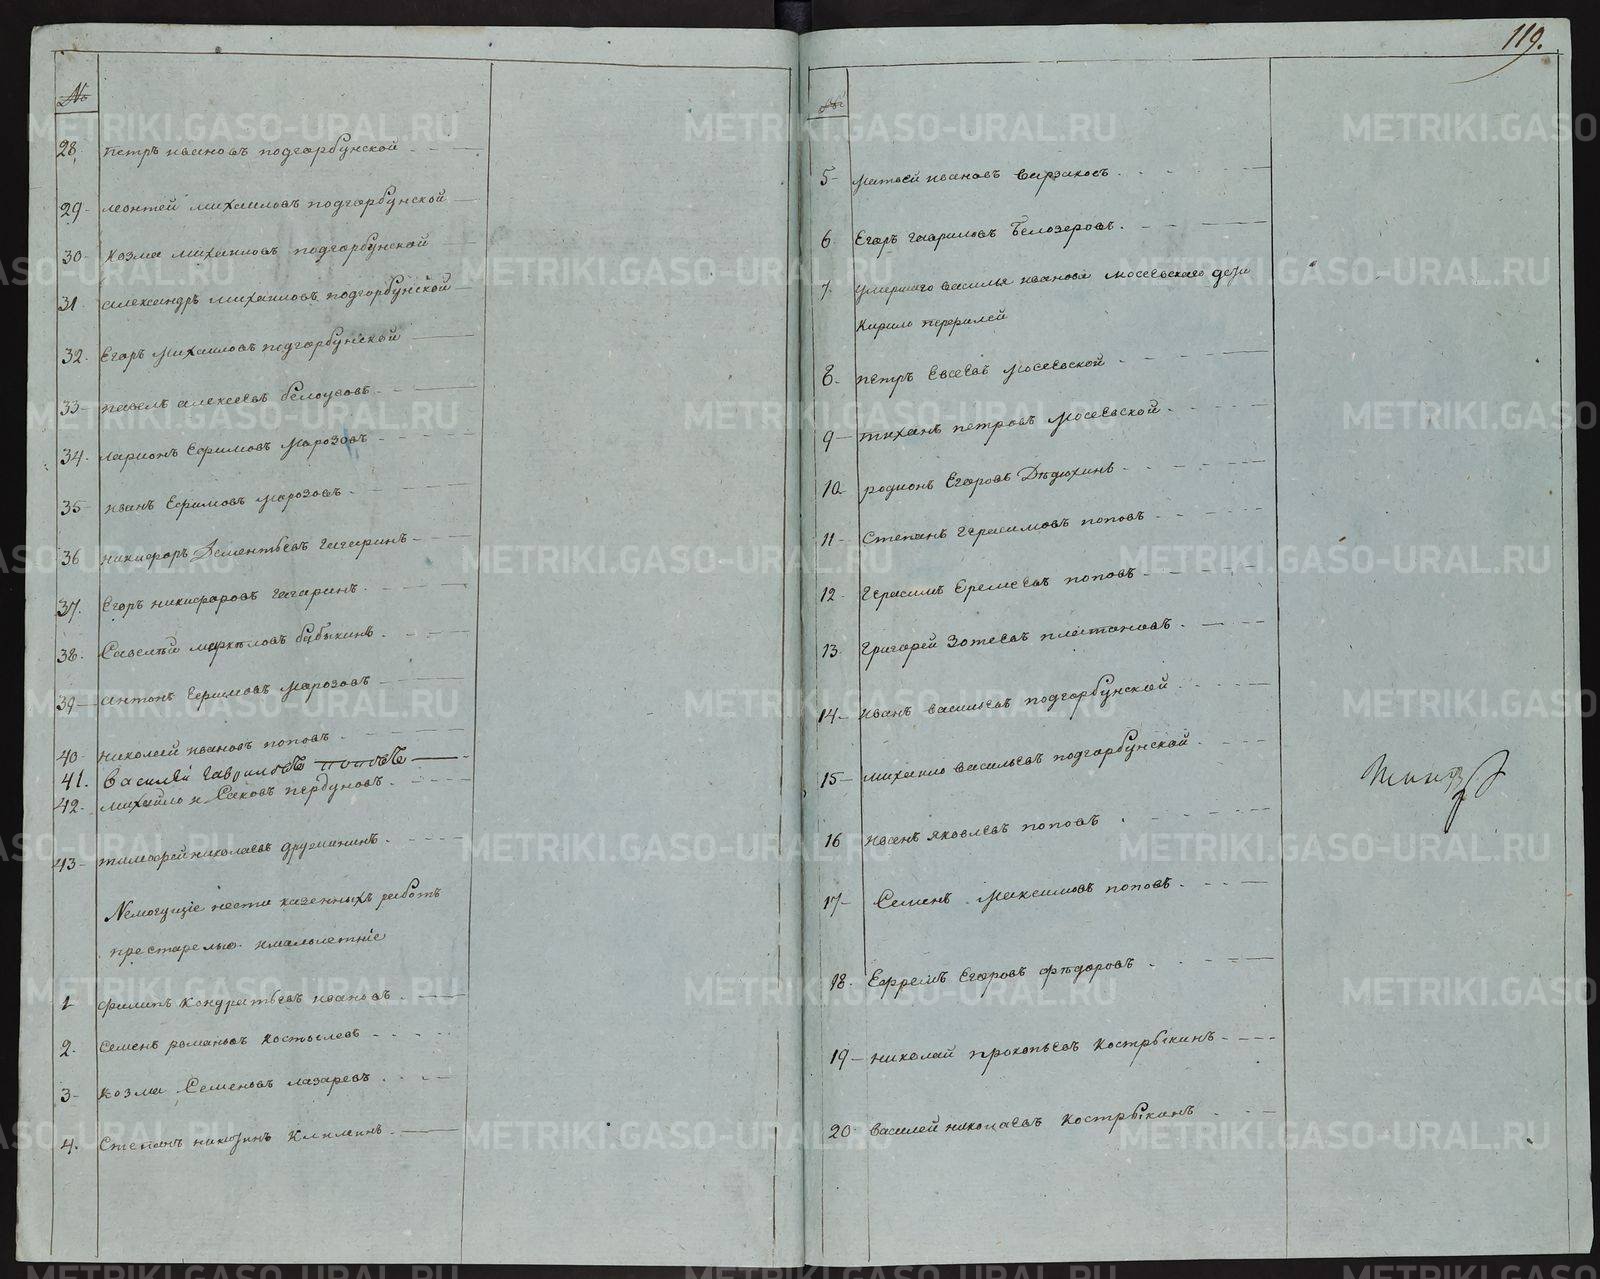 №
28. Петръ ивановъ подгорбунской
29 - леонтей михаиловъ подгорбунской
30 - козма михаиловъ подгорбунской
31 александръ михаиловъ подгорбунской
32. Егоръ Михаиловъ подгорбунской
33 - павелъ алексеевъ белоусовъ
34. ларионъ Ефимовъ Марозовъ
35 - иванъ Ефимовъ марозовъ
36 никифоръ Дементьевъ гагаринъ
37. Егоръ никифоровъ гагаринъ
38. Савелий маркеловъ бубыкинъ
39 - антонъ Ефимовъ Марозовъ
40 - николай ивановъ поповъ
41. Василѣй Гавриловъ поповъ
42. михайло Саковъ пербуновъ
43 - тимофей николаевъ дружининъ
Немогущіе нести казенныхъ работъ
престарелыя и малолетніе
1 филипъ кондратьевъ ивановъ
2. семенъ романовъ костылевъ
3 - козма Семеновъ лазаревъ
4. Степанъ никитинъ
119.
№
5 - матвей ивановъ
6 Егоръ гавриловъ белозеровъ
7. умершаго василья иванова Мосеевскаго дети
Кирило перфилей
8. петръ Евсеевъ Мосеевской
9 - тиханъ петровъ Мосеевской
10 родионъ Егоровъ Дѣдюхинъ
11 - Степанъ герасимовъ поповъ
12 - Герасимъ Еремеевъ поповъ
13 Григорей Зотеевъ платоновъ
14 - иванъ васильевъ подгорбунской
15 - михаило васильевъ подгорбунской
16 иванъ яковлевъ поповъ
17 - Семенъ Максимовъ поповъ
18. Ефремъ Егоровъ фѣдоровъ
19 - николай прокопьевъ Кострыкинъ
20 василей николаевъ Кострыкинъ
METRIKI.GASO-URAL.RU